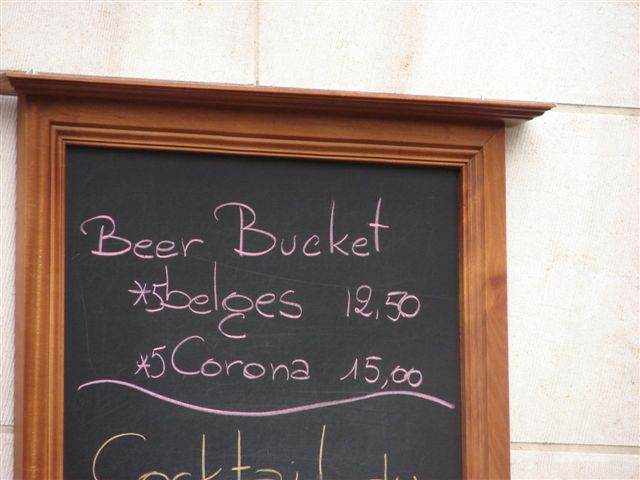 Beer Bucket
*5 belges 12,50
*5 Corona 15,00
Cocktail du